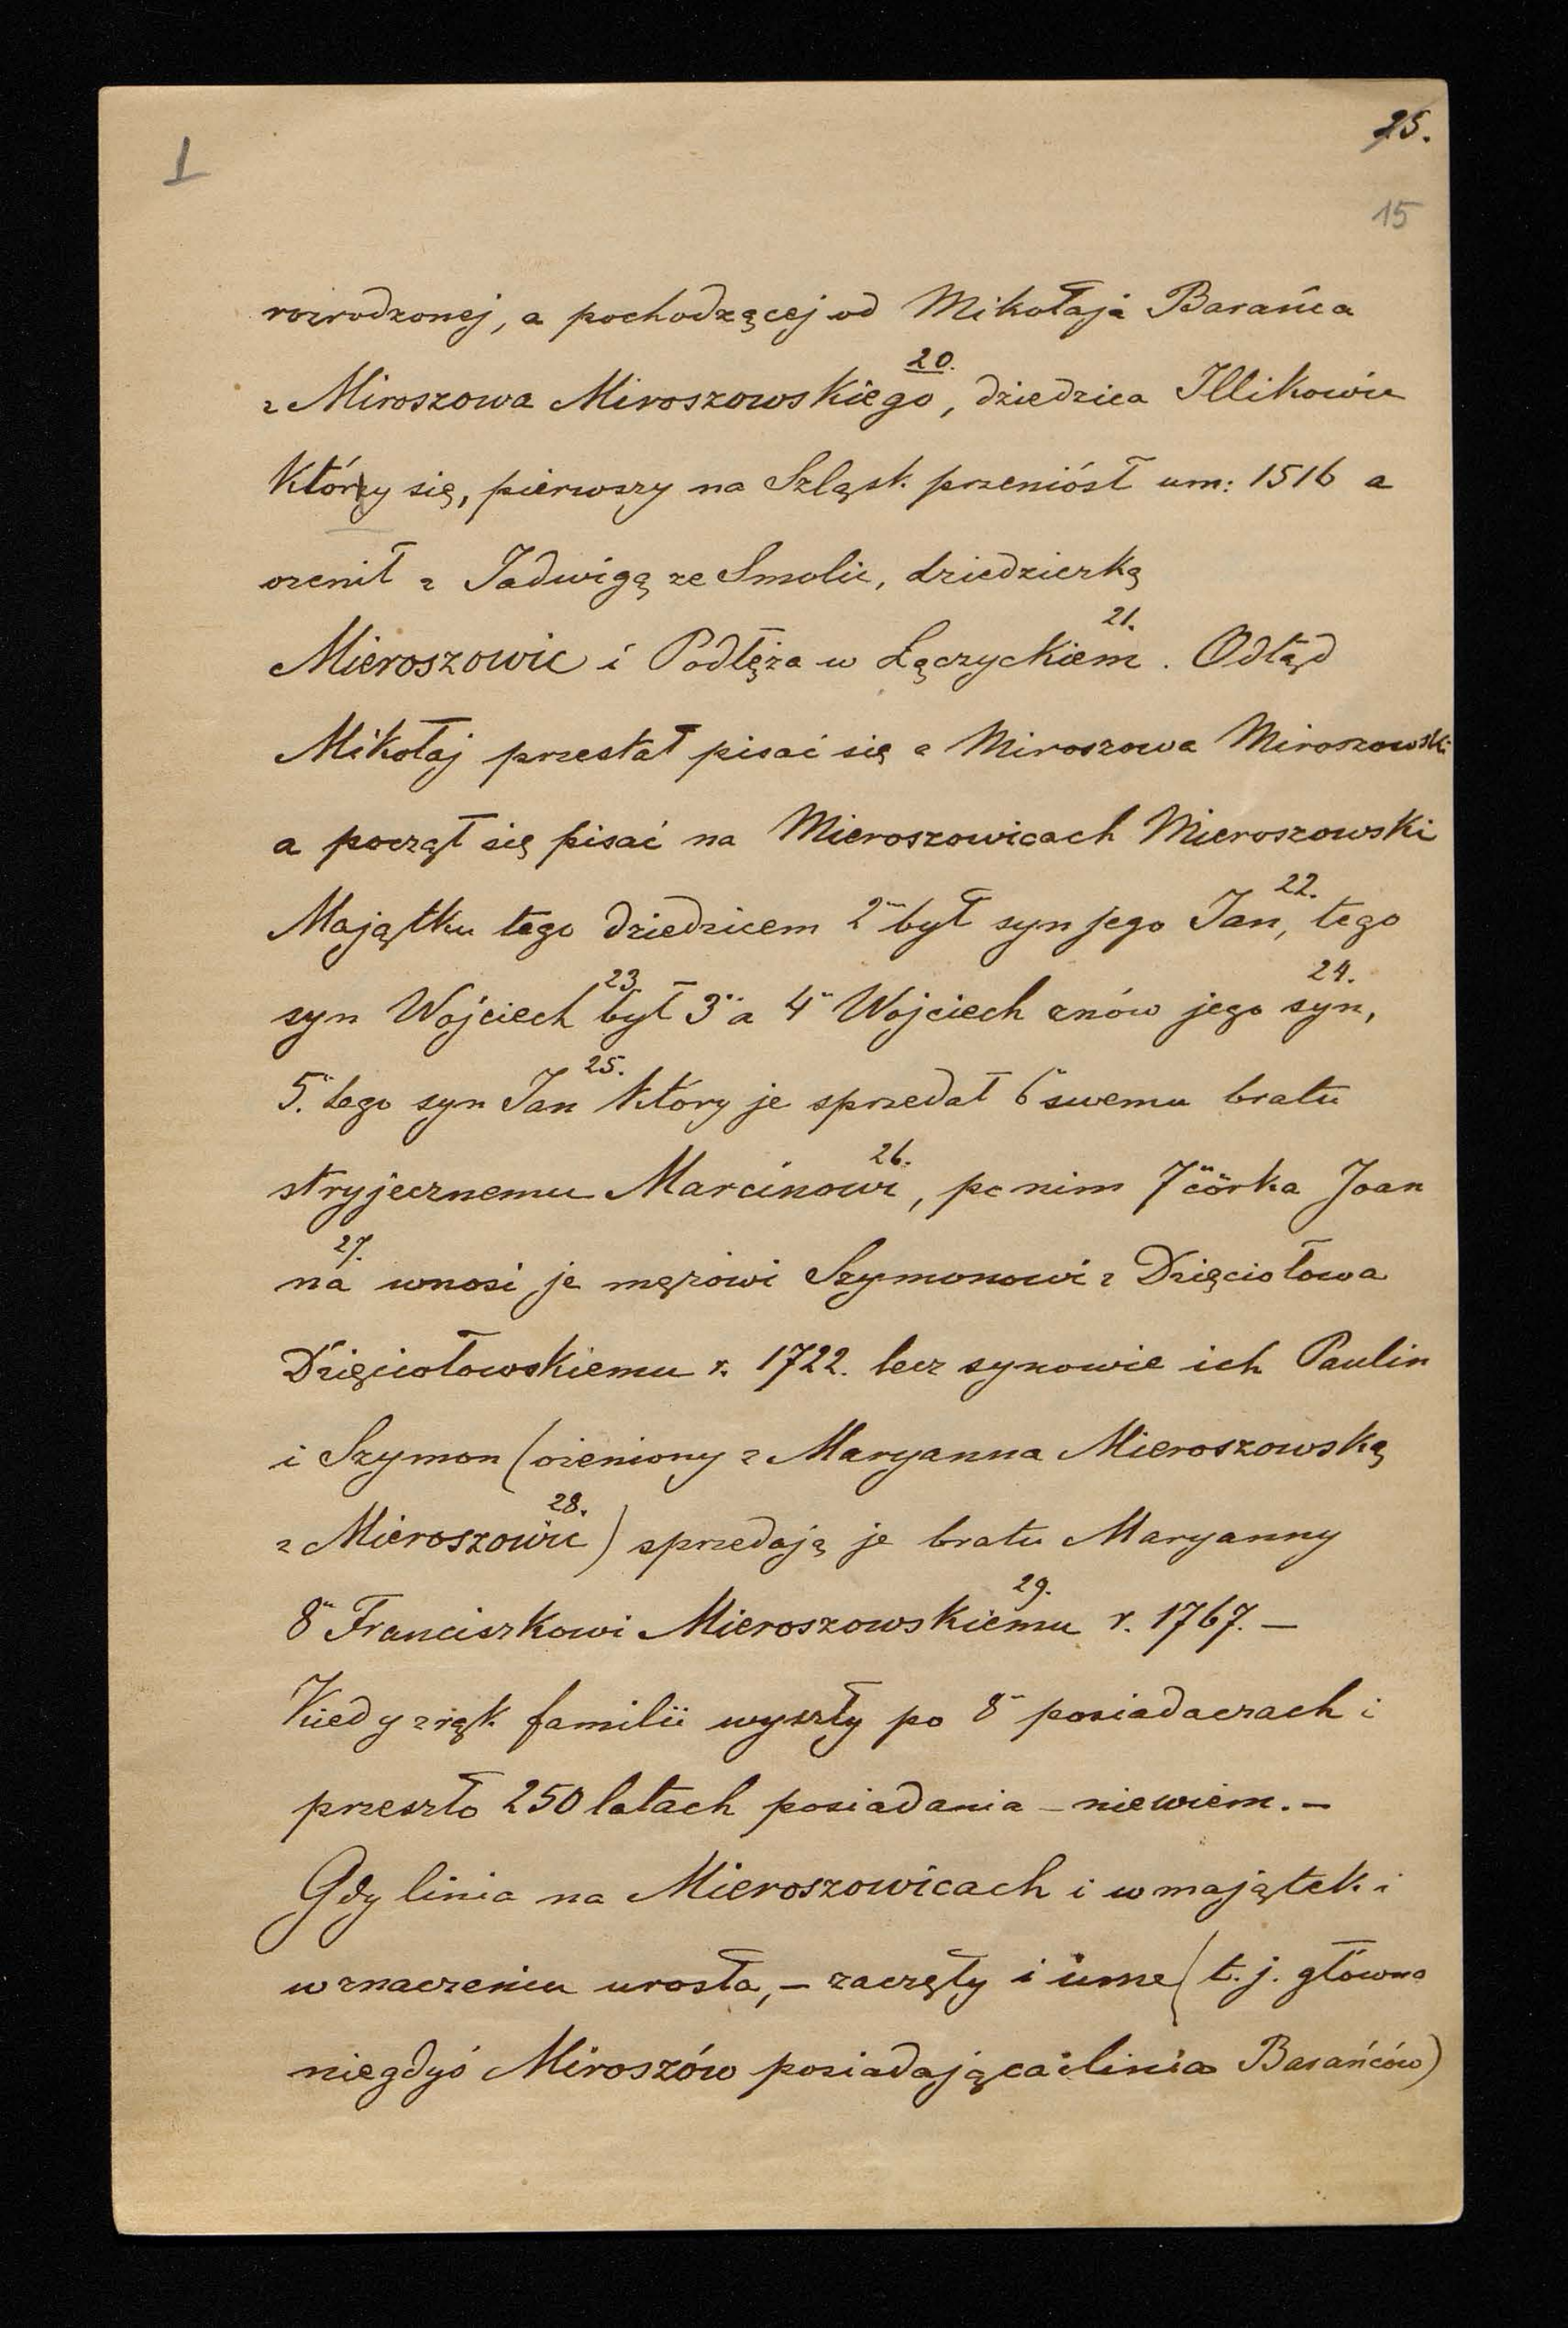 I
25.
15
rozrodzonej, a pochodzącej od Mikołaja Barańca
z Miroszowa Miroszowskiego 20., dziedzica Illikowic
Który się, pierwszy na Szląsk przeniósł um: 1516 a
ożenił z Jadwigą ze Smolic, dziedziczką
Mieroszowic i Podłęża w Łączyckiem 21. Odtąd
Mikołaj przestał pisać się z Miroszowa Miroszowski
a począł się pisać na Mieroszowicach Mieroszowski
Majątku tego dziedzicem 2 był syn jego Jan, 22. tego
syn Wojciech 23. był 3 a 4 Wojciech znów jego syn, 24.
5. tego syn Jan 25. Który je sprzedał 6 swemu bratu
stryjecznemu Marcinowi 26., po nim 7 córka Joan
na 27. wnosi je mężowi Szymonowi z Dzięciołowa
Dzięciołowskiemu r. 1722. lecz synowie ich Paulin
i Szymon (ożeniony z Maryanna Mieroszowską
z Mieroszowic 28.) sprzedają je bratu Maryanny
8 Franciszkowi Mieroszowskiemu 29. r. 1767. –
Kiedy z rąk familii wyszły po 8 posiadaczach i
przeszło 250 latach posiadania – niewiem. –
Gdy linia na Mieroszowicach i w majątek i
w znaczeniu urosła, – zaczęły i inne (t. j. główna
niegdyś Miroszów posiadająca linia Barańców)